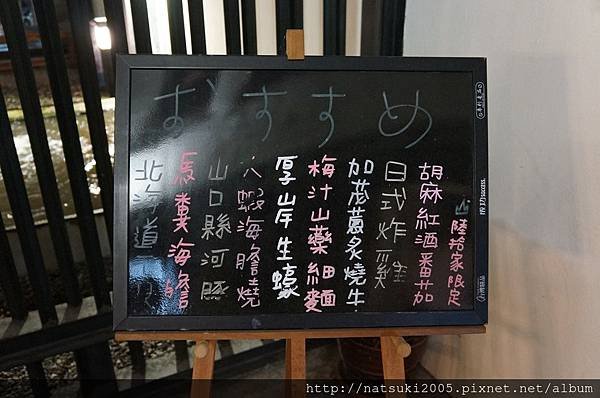 おすすめ
陸拾家限定
胡麻紅酒番茄
日式炸雞
加茂蔥炙燒牛
梅汁山藥細麵
厚岸生蠔
蝦海膽燒
山口縣河豚
馬糞海膽
北海道
http://natsuki2005.pixnet.net/album